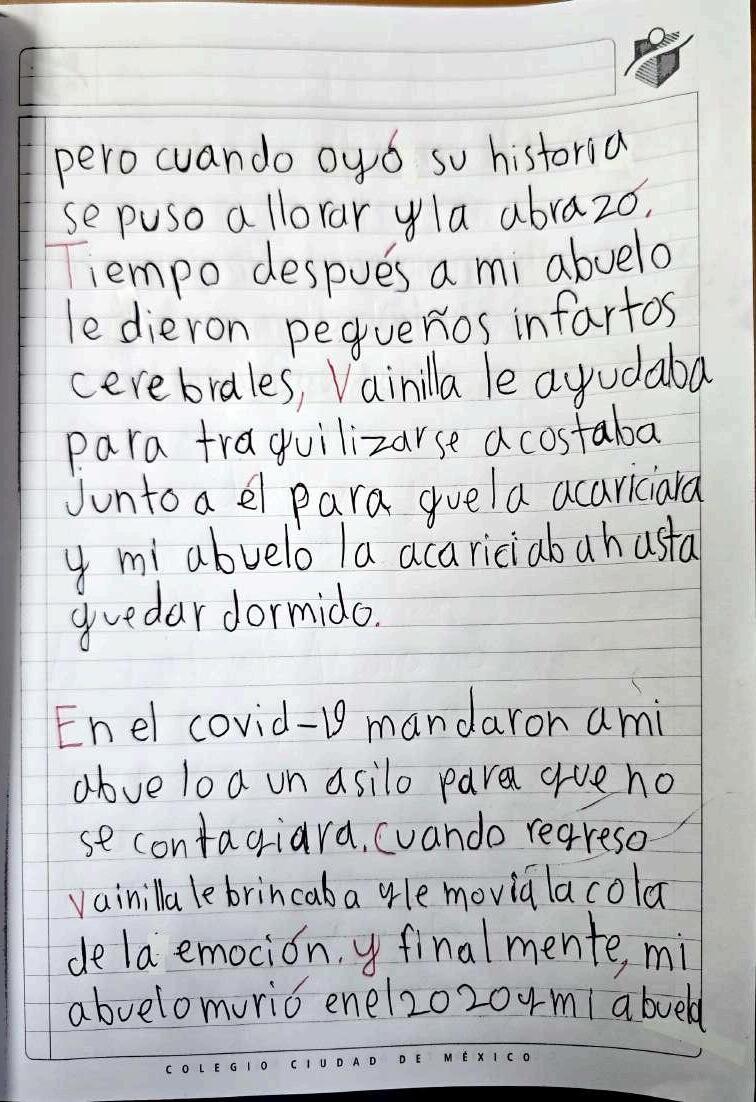 pero cuando oyó su historia
se puso a llorar y la abrazó.
Tiempo después a mi abuelo
le dieron pequeños infartos
cerebrales, Vainilla le ayudaba
para traquilizarse acostaba
junto a él para que la acariciara
y mi abuelo la acariciaba hasta
quedar dormido.
En el covid-19 mandaron a mi
abuelo a un asilo para que no
se contagiara. Cuando regreso
Vainilla le brincaba y le movía la cola
de la emoción. y finalmente, mi
abuelo murió en el 2020 y mi abuela
COLEGIO CIUDAD DE MÉXICO